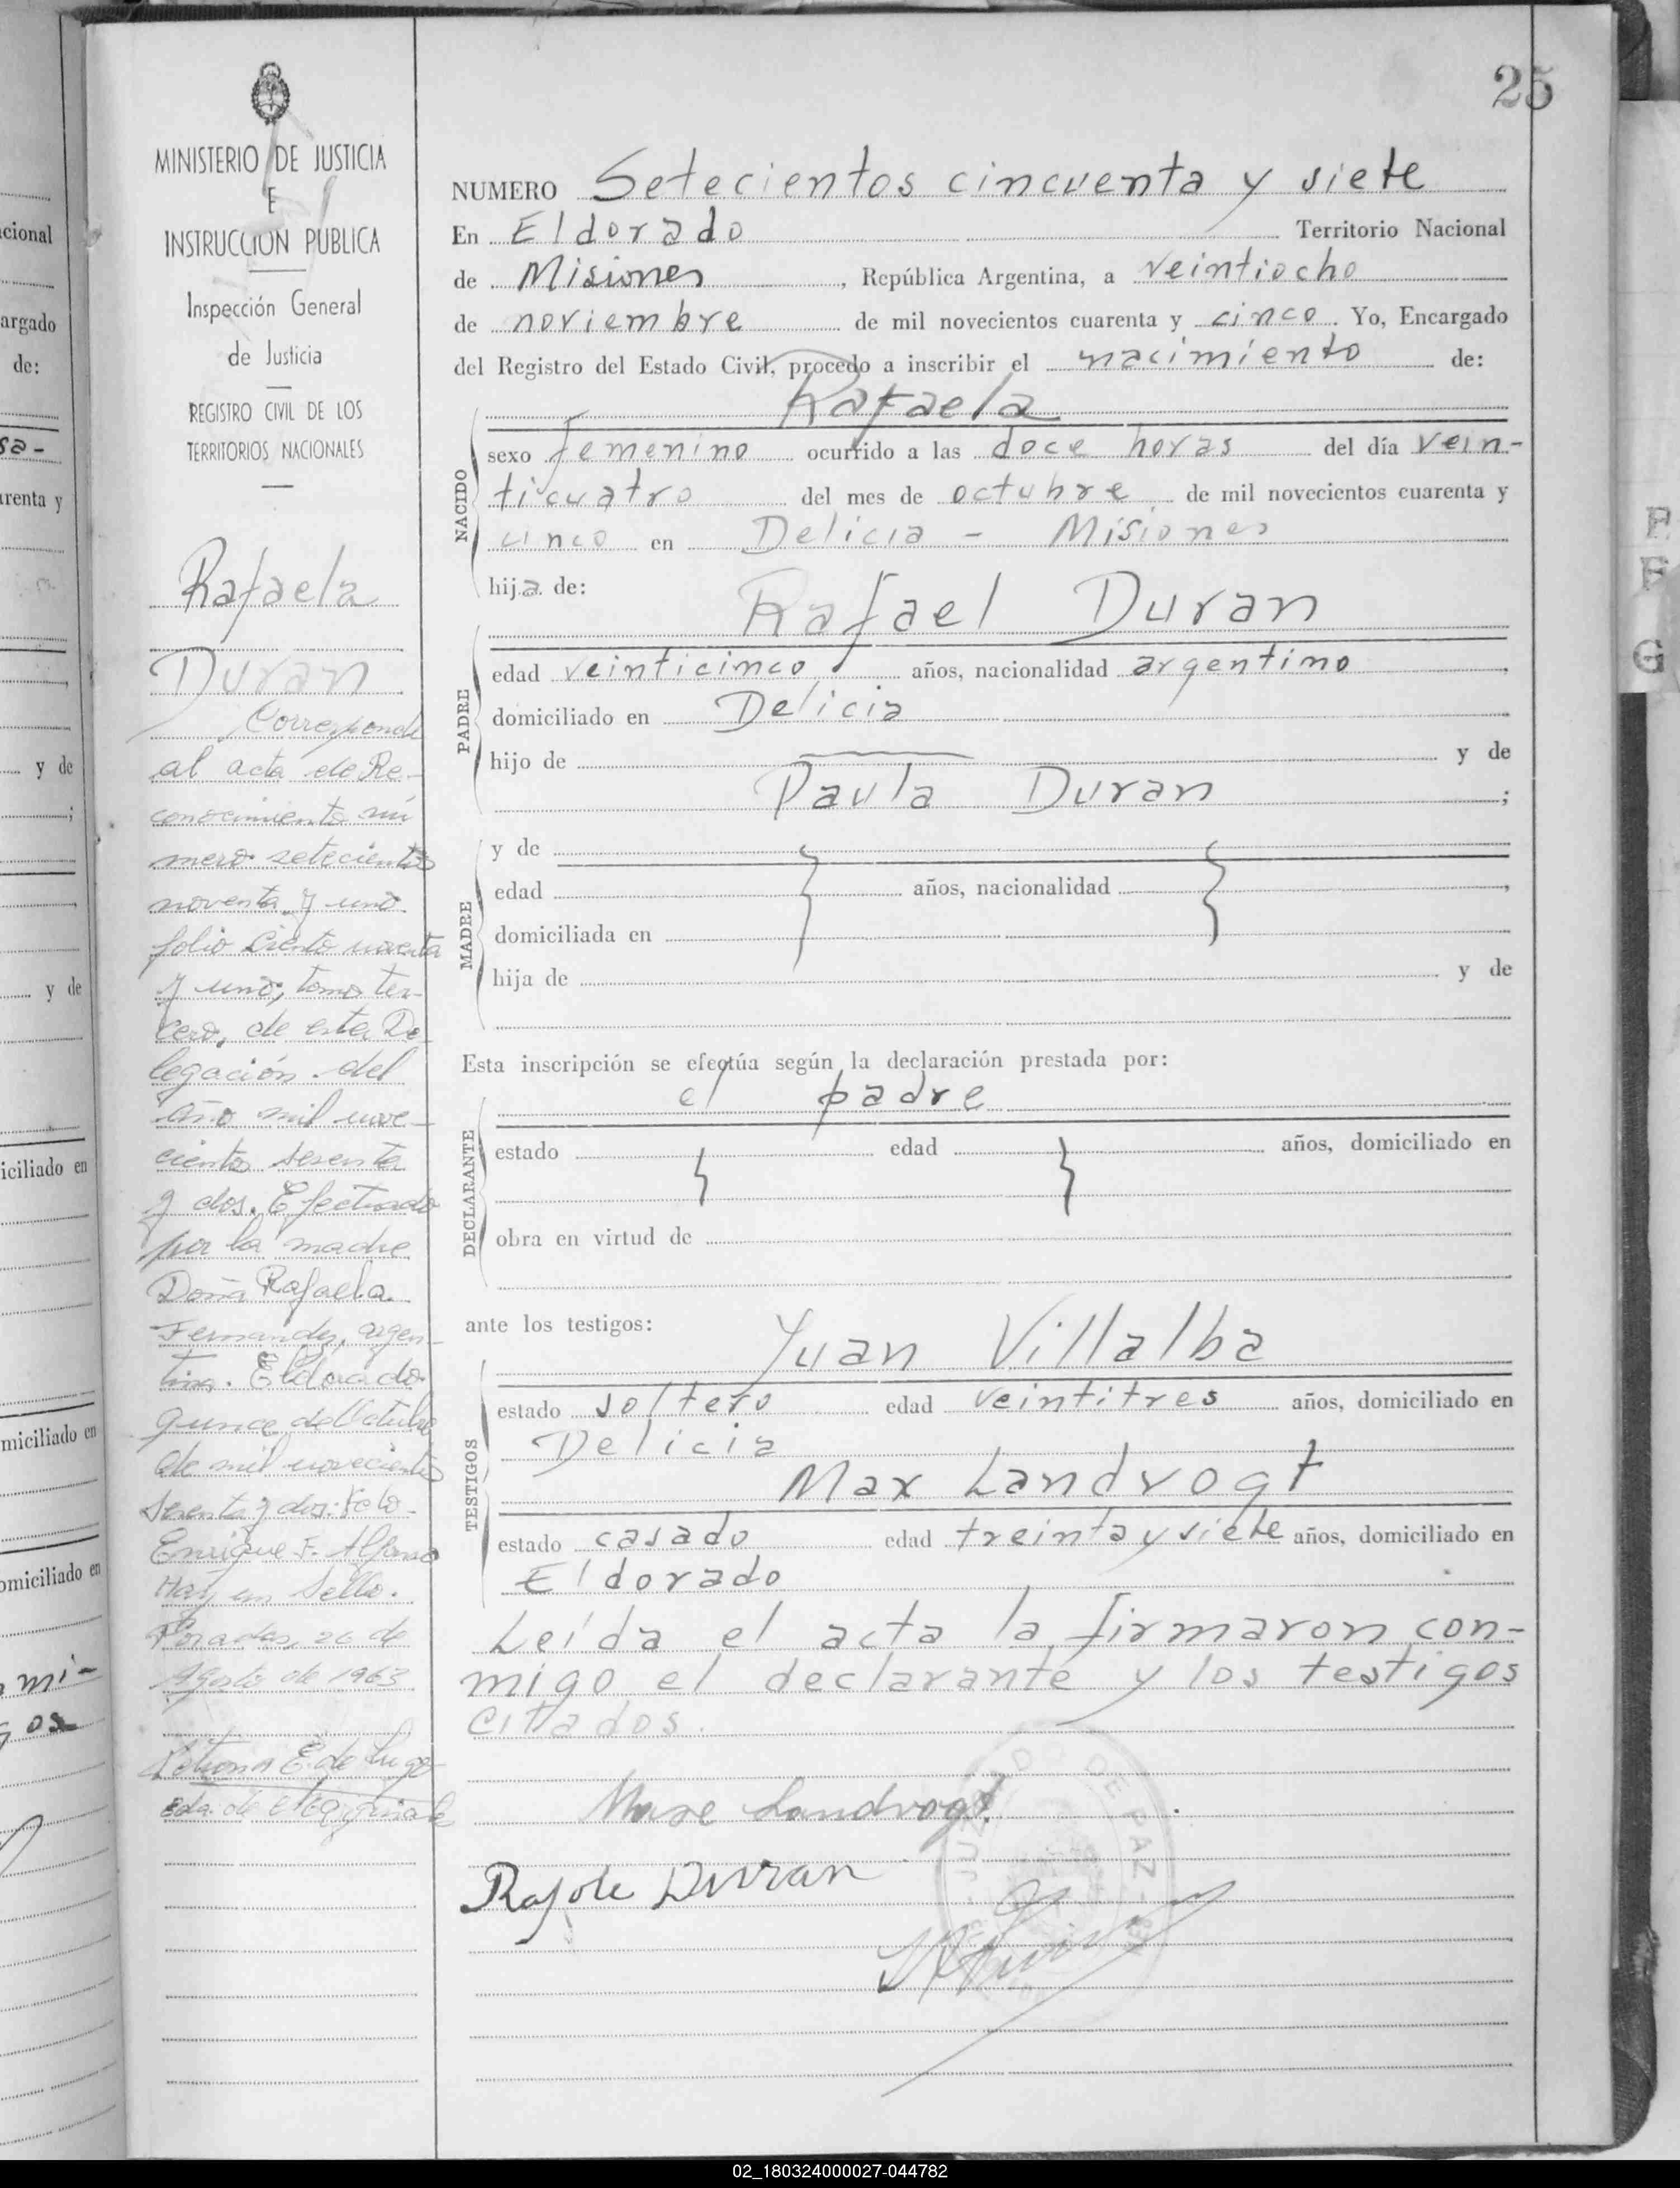 25
MINISTERIO DE JUSTICIA
E
INSTRUCCION PUBLICA
Inspección General
de Justicia
REGISTRO CIVIL DE LOS
TERRITORIOS NACIONALES
Rafaela
Duran
Corresponde
al acta de Re-
conocimiento nú
mero setecientos
noventa y uno
folio ciento noventa
y uno, tomo ter-
cero, de esta De
legación del
año mil nove-
cientos sesenta
y dos. Efectuado
por la madre
Doña Rafaela
Fernandez, argen-
tina. Eldorado
quince de Octubre
de mil novecientos
sesenta y dos: Fdo
Enrique F. Alfonso
Hay un sello.
Posadas, 26 de
Agosto de 1963
E. de Lugo
NUMERO Setecientos cincuenta y siete
En Eldorado Territorio Nacional
de Misiones, República Argentina, a veintiocho
de noviembre de mil novecientos cuarenta y cinco. Yo, Encargado
del Registro del Estado Civil, procedo a inscribir el nacimiento de:
Rafaela
NACIDO
sexo femenino ocurrido a las doce horas del día vein-
ticuatro del mes de octubre de mil novecientos cuarenta y
cinco en Delicia - Misiones
hija de:
Rafael Duran
PADRE
edad veinticinco años, nacionalidad argentino,
domiciliado en Delicia
hijo de y de
Paula Duran;
MADRE
y de
edad años, nacionalidad,
domiciliada en
hija de y de
Esta inscripción se efectúa según la declaración prestada por:
el padre
DECLARANTE
estado edad años, domiciliado en
obra en virtud de
ante los testigos:
Yuan Villalba
TESTIGOS
estado soltero edad veintitres años, domiciliado en
Delicia
Max Landvogt
estado casado edad treinta y siete años, domiciliado en
Eldorado
Leída el acta la firmaron con-
migo el declarante y los testigos
citados.
Max Landvogt
Rafole Durran
JUZGADO DE PAZ
cional
argado
de:
sa-
arenta y
y de
;
y de
iciliado en
miciliado en
omiciliado en
mi-
os
P
F
G
02_180324000027-044782